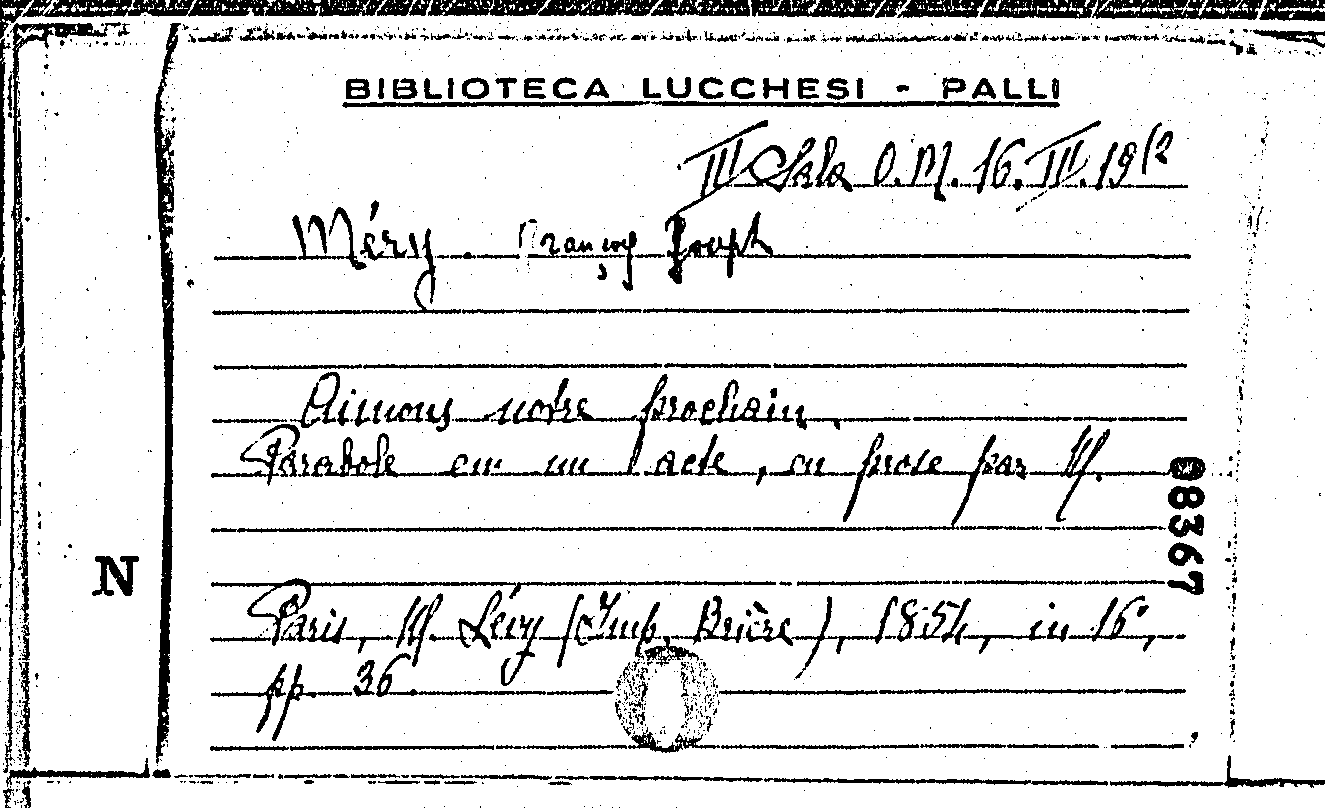 BIBLIOTECA LUCCHESI - PALLI
III Sala O.M. 16.III.19(2
Méry. François Joseph
Aimons notre prochain.
Parabole en un acte, en prose par M.
08367
N
Paris, M. Lévy (Imp. Brière), 1854, in 16°,
pp. 36.